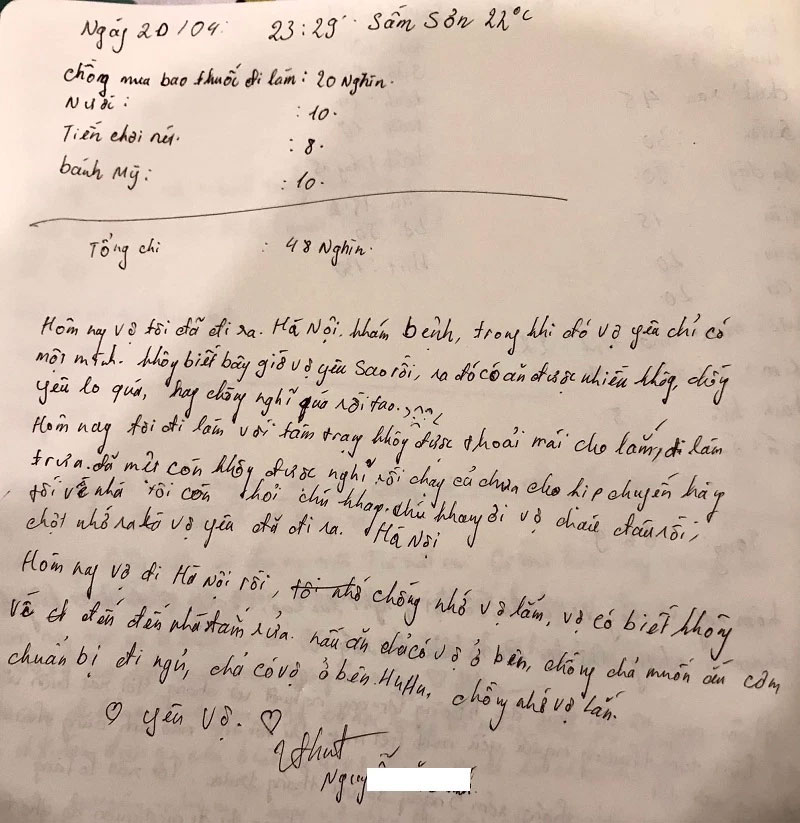 Ngày 20/04. 23:29' Sầm Sơn 22°C
chồng mua bao thuốc đi làm: 20 Nghìn.
Nước: : 10.
Tiền chơi nét. : 8.
bánh Mỳ: : 10.
Tổng chi : 48 Nghìn.
Hôm nay vợ tôi đã đi ra. Hà Nội. khám bệnh, trong khi đó vợ yêu chỉ có
một mình. không biết bây giờ vợ yêu sao rồi, ra đó có ăn được nhiều không, chồng
yêu lo quá, hay chồng nghĩ quá rồi tao.
Hôm nay tôi đi làm với tâm trạng không được thoải mái cho lắm, đi làm
trưa. đã mệt còn không được nghỉ rồi chạy cả trưa cho kịp chuyến hàng
tối về nhà tôi còn hỏi chú khang. chú khang ơi vợ cháu đâu rồi,
chợt nhớ ra là vợ yêu đã đi ra. Hà Nội
Hôm nay vợ đi Hà Nội rồi, tôi nhớ chồng nhớ vợ lắm, vợ có biết không
về đến đến nhà tắm rửa. nấu ăn chả có vợ ở bên, chồng chả muốn ăn cơm
chuẩn bị đi ngủ, chả có vợ ở bên. HuHu, chồng nhớ vợ lắm.
♡ yêu vợ. ♡
Nguyễ